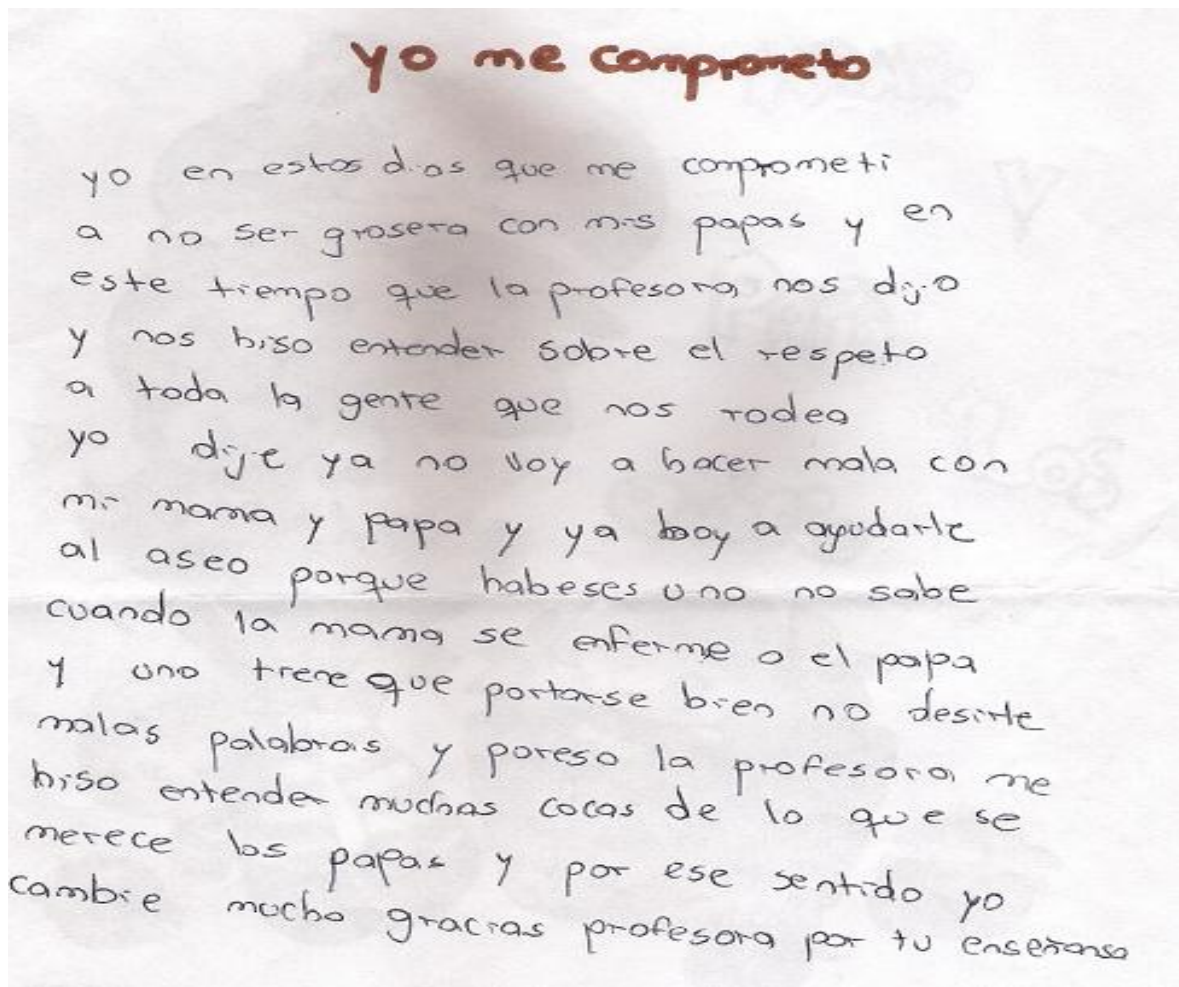 yo me comprometo
yo en estos dias que me comprometi
a no ser grosera con mis papas y en
este tiempo que la profesora nos dijo
y nos hiso entender sobre el respeto
a toda la gente que nos rodea
yo dije ya no voy a hacer mala con
mi mama y papa y ya boy a ayudarle
al aseo porque habeses uno no sabe
cuando la mama se enferme o el papa
y uno tiene que portarse bien no desirle
malas palabras y poreso la profesora me
hiso entender muchas cocas de lo que se
merece los papas y por ese sentido yo
cambie mucho gracias profesora por tu enseñansa